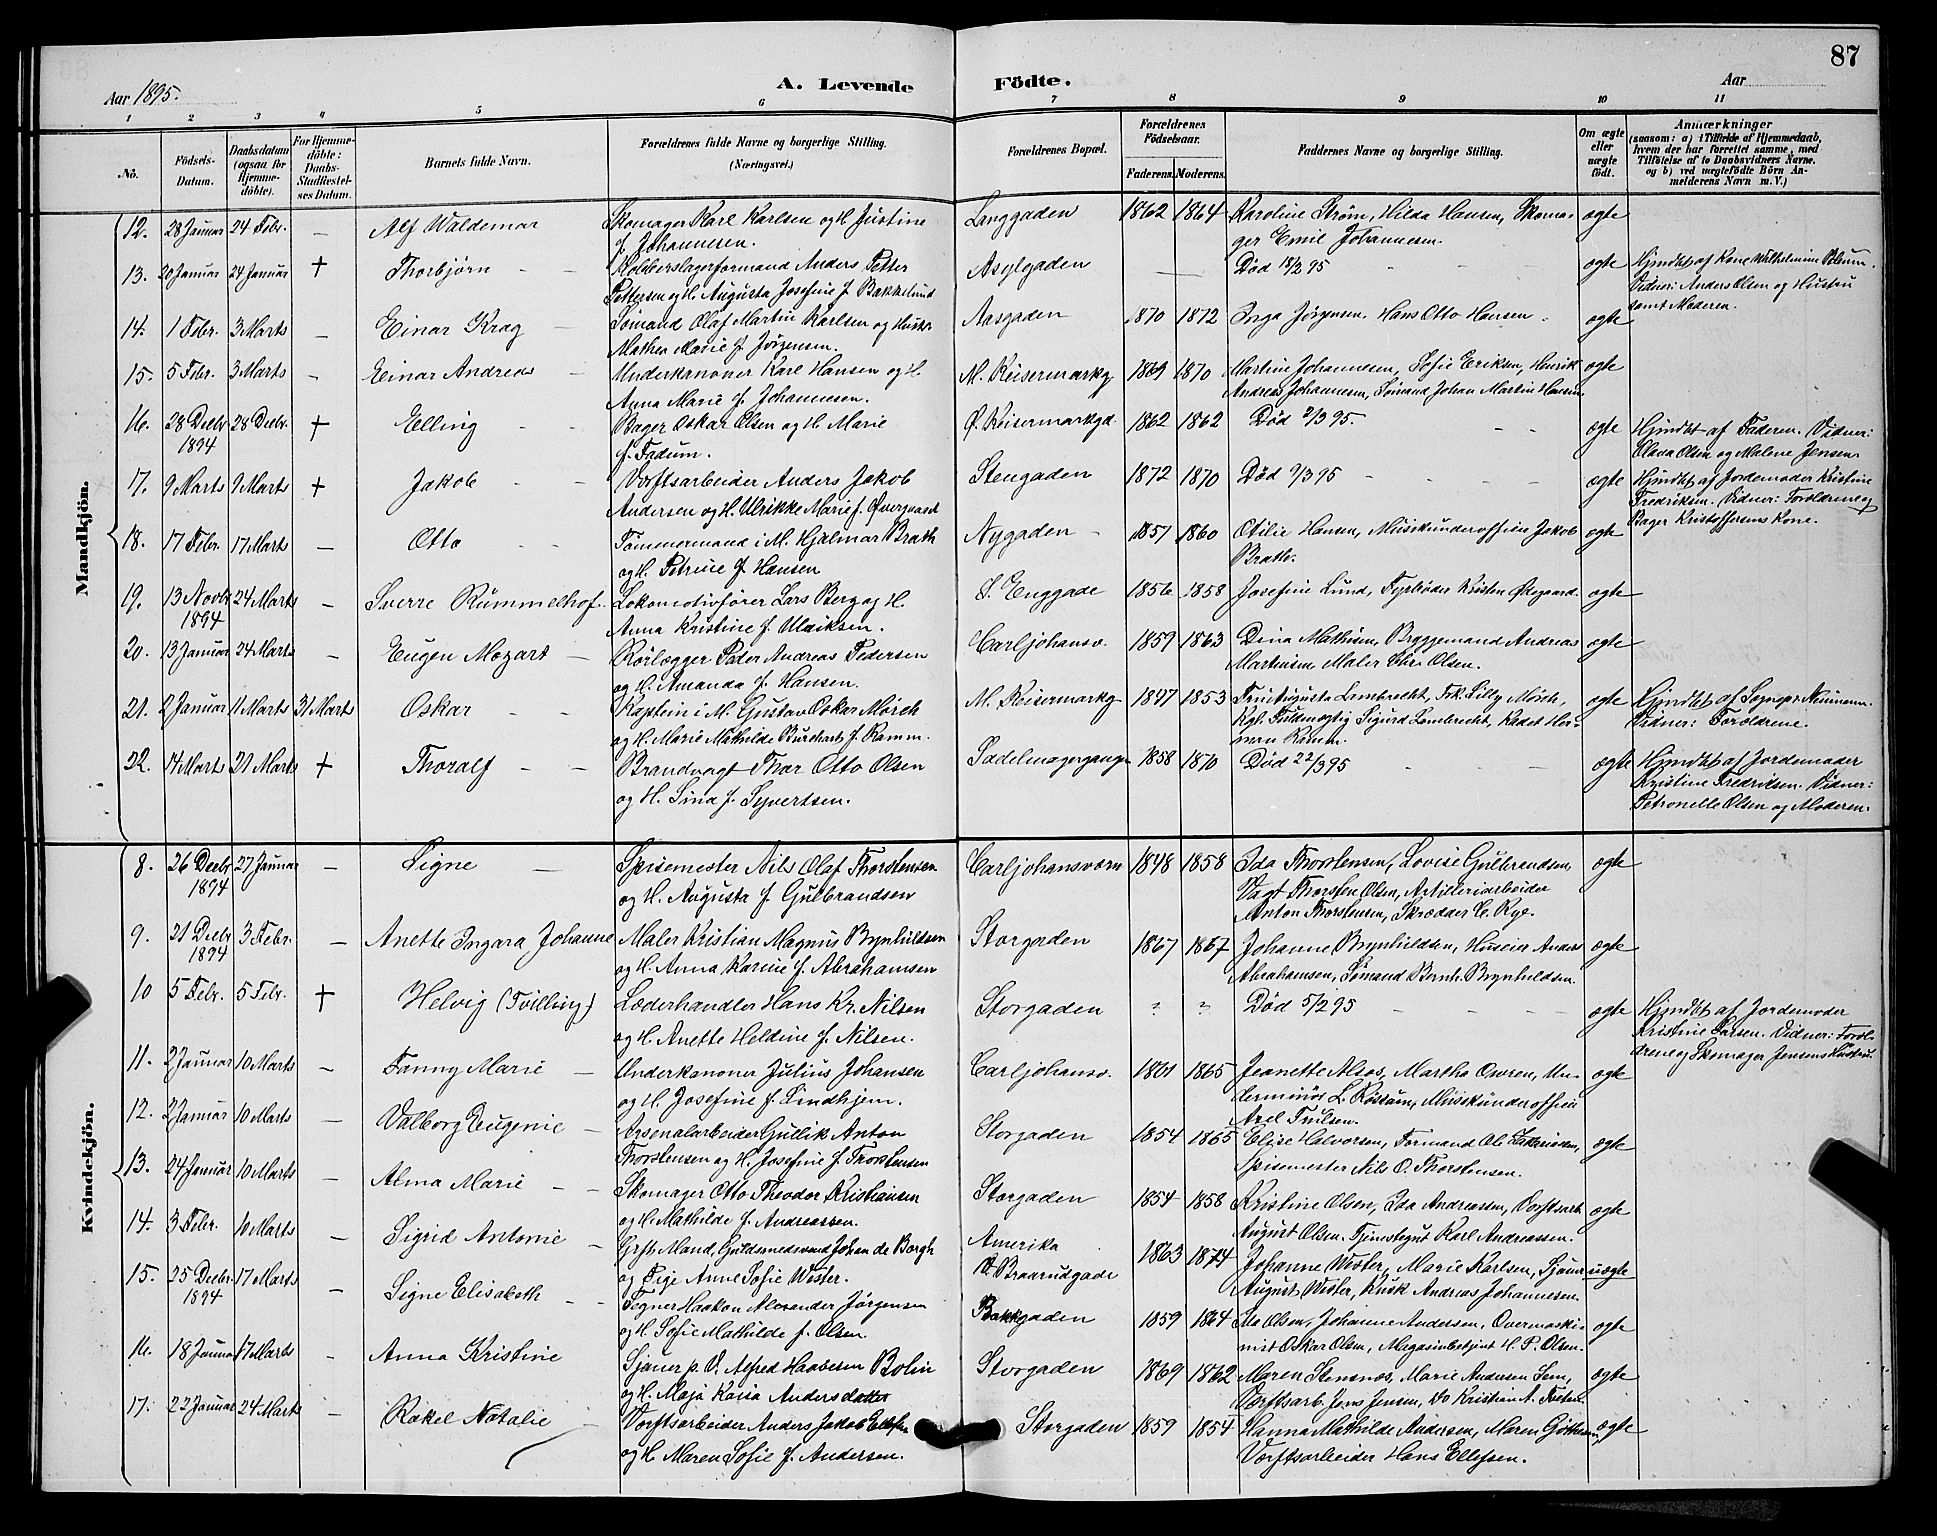 87
Aar 1895.
A. Levende Födte.
Aar
1 2 3 4 5 6 7 8 9 10 11
No.
Födsels-Datum.
Daabsdatum (ogsaa for Hjemme-döbte).
For Hjemme-döbte: Daabs-Stadfæstelses Datum.
Barnets fulde Navn.
Forældrenes fulde Navne og borgerlige Stilling. (Næringsvei.)
Forældrenes Bopæl.
Forældrenes Födselsaar.
Faderens. Moderens.
Faddernes Navne og borgerlige Stilling.
Om ægte eller uægte födt.
Anmærkninger
(saasom: a) i Tilfælde af Hjemmedaab, hvem der har forrettet samme, med Tilföielse af to Daabsvidners Navne, og b) ved uægtefödte Börn Anmelderens Navn m. V.)
Mandkjön.
12. 28 Januar 24 Febr. – Alf Waldemar Skomager Karl Karlsen og H. Justine Langgaden 1862 1864 Karoline Strøm, Hilda Hansen, Skoma- ægte
f. Johannesen. ger Emil Johannesen.
13. 20 Januar 24 Januar + Thorbjörn – – Kobberslagerformand Anders Petter Asylgaden — — Død 18/2 95 ægte Hjmdbt af Kone Wilhelmine
Pettersen og H. Augusta Josefine f. Bakkelund Vidner: Anders Olsen og Hustru
samt Moderen.
14. 1 Febr. 3 Marts – Einar Krag – Sömand Olaf Martin Karlsen og Hustr. Aasgaden 1870 1872 Inga Jørgensen. Hans Otto Hansen. ægte
Mathea Marie f. Jørgensen.
15. 5 Febr. 3 Marts – Einar Andreas – Underkanoner Karl Hansen og H. M. Keisermarkg 1869 1870 Martine Johannesen, Sofie Eriksen, Henrik ægte
Anna Marie f. Johannesen. Andreas Johannesen, Sömand Johan Martin Hansen
16. 28 Decbr 1894 28 Decbr. + Elling – – Bager Oskar Olsen og H. Marie Ø. Keisermarkgd. 1862 1862 Død 2/3 95. – – ægte Hjmdbt af Faderen. Vidner:
f. Fadum. Olava Olsen og Malene Jensen
17. 9 Marts 9 Marts + Jakob – – Værftsarbeider Anders Jakob Stengaden 1872 1870 Død 9/3 95 ægte Hjmdbt af Jordemoder Kristine
Andersen og H. Ulrikke Marie f. Øvergaard Fredriksen. Vidner: Forældrene og
Bager Kristoffersens Kone.
18. 17 Febr. 17 Marts – Otto – – Tömmermand i M. Hjalmar Brath Nygaden – 1857 1860 Otilie Hansen, Musikunderofficer Jakob ægte
og H. Petrine f. Hansen Brath.
19. 13 Novbr 1894 24 Marts – Sverre Rummelhof. Lokomotivfører Lars Berg og H. S. Enggade 1856 1858 Josefine Lund, Fyrbøder Kristen Østgaard. ægte
Anna Kristine f. Ulriksen.
20. 13 Januar 24 Marts – Eugen Mozart – Rörlægger Peder Andreas Pedersen Carljohansv. 1859 1863 Dina Mathisen, Bryggemand Andreas ægte
og H. Amanda f. Hansen. Martinsen, Maler Chr. Olsen.
21. 2 Januar 11 Marts 31 Marts Oskar – – Kaptein i M. Gustav Oskar Mørch M. Keisermarkg 1847 1853 Fru Augusta Lambrecht, Frk. Lilly Mörch, ægte Hjmdbt af Sognepr. Neumann.
og H. Marie Mathilde Burchart f. Ramm. Kgl. Fuldmægtig Sigurd Lambrecht, Kadet Her- Vidner: Forældrene.
man Ramm.
22. 14 Marts 21 Marts + Thoralf – – Brandvagt Thor Otto Olsen Sadelmagergangen 1858 1870 Død 22/3 95 – – ægte Hjmdbt af Jordemoder
og H. Lina f. Syvertsen. Kristine Fredriksen. Vidner:
Petronelle Olsen og Moderen.
Kvindekjön.
8. 26 Decbr 1894 27 Januar – Signe – Spisemester Nils Olaf Thorstensen Carljohansværn 1848 1858 Ida Thorstensen, Lovise Gulbrandsen, ægte
og H. Augusta f. Gulbrandsen Vagt Thorsten Olsen, Artilleriarbeider
Anton Thorstensen, Skrædder C. Rye.
9. 21 Decbr 1894 3 Febr. – Anette Ingara Johanne Maler Kristian Magnus Brynhildsen Storgaden 1867 1867 Johanne Brynhildsen, Huseier Anders ægte
og H. Anna Karine f. Abrahamsen Abrahamsen, Sømand Bernh. Brynhildsen.
10 5 Febr. 5 Febr. + Helvig (Tvilling) Læderhandler Hans Kr. Nilsen Storgaden ? ? Død 5/2 95 – – ægte Hjmdbt af Jordemoder
og H. Anette Heldine f. Nilsen. Kristine Larsen. Vidner: Foræl-
drene og Skomager Jensens Hustru.
11. 2 Januar 10 Marts – Fanny Marie – Underkanoner Julius Johansen Carljohansv. 1861 1865 Jeanette Alsos, Martha Owren, Un- ægte
og H. Josefine f. Lindhjem. derminör L. Röskum, Musikunderofficer
Axel Trulsen.
12. 2 Januar 10 Marts – Valborg Eugenie – Arsenalarbeider Gullik Anton Storgaden 1854 1865 Elise Halvorsen, Formand Ole ægte
Thorstensen og H. Josefine f. Thorstensen Spisemester Nils O. Thorstensen.
13. 24 Januar 10 Marts – Alma Marie – – Skomager Otto Theodor Kristiansen Storgaden 1854 1858 Kristine Olsen, Ida Andreassen, Værftsarb. ægte
og H. Mathilde f. Andreassen. August Olsen. Tjenestegut Karl Andreassen.
14. 3 Febr. 10 Marts – Sigrid Antonie – Gift Mand, Guldsmedsvend Johan de Borgh Amerika 1863 1874 Johanne Wøster, Marie Karlsen, Sjauer uægte
og Pige Anne Sofie Wøster. V. Braarudgade August Wister, Kusk Andreas Johannesen.
15. 25 Decbr. 1894 17 Marts – Signe Elisabeth – – Tegner Haakon Alexander Jörgensen Bakkgaden 1859 1864 Olsen, Johanne Andersen, Overmaski- ægte
og H. Sofie Mathilde f. Olsen. nist Oskar Olsen, Magasinbetjent H. P. Olsen.
16. 18 Januar 17 Marts – Anna Kristine Sjauer p. V. Alfred Haabesen Bolin Storgaden 1869 1862 Maren Stensnæs, Marie Andersen Sem, ægte
og H. Maja Kaisa Andersdatter Værftsarb. Jens Jensen, Do Kristian A.
17. 22 Januar 24 Marts – Rakel Natalie – Værftsarbeider Anders Jakob Ellefsen Storgaden 1859 1854 Hanna Mathilde Andersen, Maren ægte
og H. Maren Sofie f. Andersen. Værftsarbeider Hans Ellefsen.